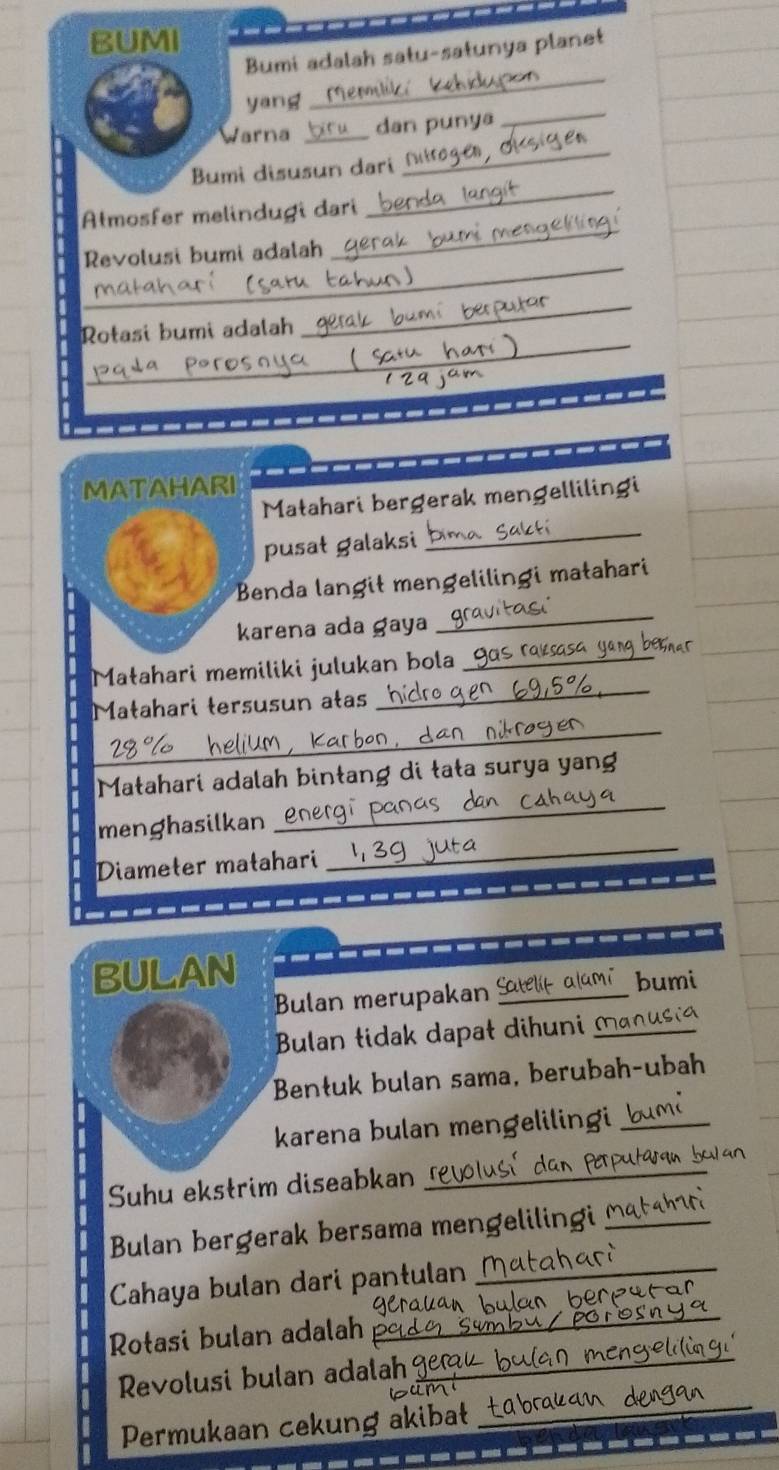 BUMI
Bumi adalah satu-satunya planet
yang Memiliki kehidupan
Warna biru dan punya
Bumi disusun dari nitrogen, oksigen
Atmosfer melindugi dari benda langit
Revolusi bumi adalah gerak bumi mengelilingi
matahari (satu tahun)
Rotasi bumi adalah gerak bumi berputar
pada porosnya (satu hari)
(29 jam
MATAHARI
Matahari bergerak mengellilingi
pusat galaksi bima sakti
Benda langit mengelilingi matahari
karena ada gaya gravitasi
Matahari memiliki julukan bola gas raksasa yang besinar
Matahari tersusun atas hidrogen 69,5%,
28% helium, karbon, dan nitrogen
Matahari adalah bintang di tata surya yang
menghasilkan energi panas dan cahaya
Diameter matahari 1,39 juta
BULAN
Bulan merupakan Satelit alami bumi
Bulan tidak dapat dihuni manusia
Bentuk bulan sama, berubah-ubah
karena bulan mengelilingi bumi
Suhu ekstrim diseabkan revolusi dan perputaran bulan
Bulan bergerak bersama mengelilingi matahari
Cahaya bulan dari pantulan matahari
gerakan bulan berputar
Rotasi bulan adalah pada sumbu / porosnya
Revolusi bulan adalah gerak bulan mengelilingi
bumi
Permukaan cekung akibat tabrakan dengan
benda langit